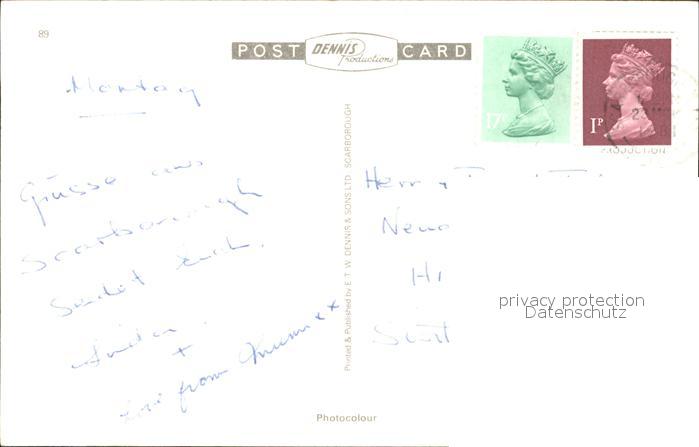 89
POST DENNIS Productions CARD
17P
1P
PRODUCTION
Montag
Grüsse aus
Scarborough
sendet Euch
+
Love from
Herr
Printed & Published by E. T. W. DENNIS & SONS LTD. SCARBOROUGH
privacy protection
Datenschutz
Photocolour